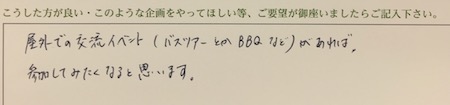 こうした方が良い・このような企画をやってほしい等、ご要望が御座いましたらご記入下さい。
屋外での交流イベント(バスツアーとかBBQなど)があれば、
参加してみたくなると思います。